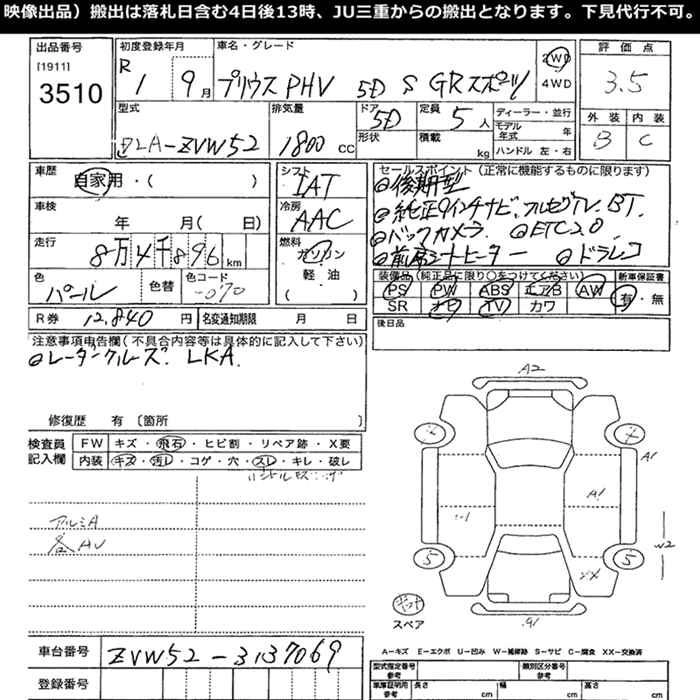 映像出品）搬出は落札日含む4日後13時、JU三重からの搬出となります。下見代行不可。
出品番号
[1911]
3510
初度登録年月
R 1 9月
車名・グレード
プリウスPHV 5D S GRスポーツ
2WD
4WD
評価点
3.5
外装 内装
B C
型式
DLA-ZVW52
排気量
1800 cc
ドア
5D
形状
定員
5人
積載
kg
ディーラー・並行
モデル年式 年
ハンドル 左・右
車歴
自家用・( )
車検
年 月( 日)
走行
8万4千896 km
色
パール
色替
色コード
-070
シフト
IAT
冷房
AAC
燃料
ガソリン
軽油
( )
セールスポイント（正常に機能するものに限ります）
後期型
純正9インチナビ、フルセグTV、BT
バックカメラ ETC2.0
前席シートヒーター ドラレコ
装備品（純正品に限り○をつけてください）
PS PW ABS エアB AW
SR ナビ TV カワ
新車保証書
有・無
R券 12,840 円
名変通知期限 月 日
後日品
注意事項申告欄（不具合内容等は具体的に記入して下さい）
レーダークルーズ LKA
修復歴 有〔箇所 〕
検査員記入欄
FW キズ・飛石・ヒビ割・リペア跡・X要
内装 キズ・汚レ・コゲ・穴・スレ・キレ・破レ
アルミA
各AU
A2
A1
A1
W2
XX
5
5
スペア
A-キズ E-エクボ U-凹み W-補修跡 S-サビ C-腐食 XX-交換済
車台番号
ZVW52-3137069
登録番号
型式指定番号
参考
類別区分番号
参考
車庫証明用
参考
長さ cm
幅 cm
高さ cm